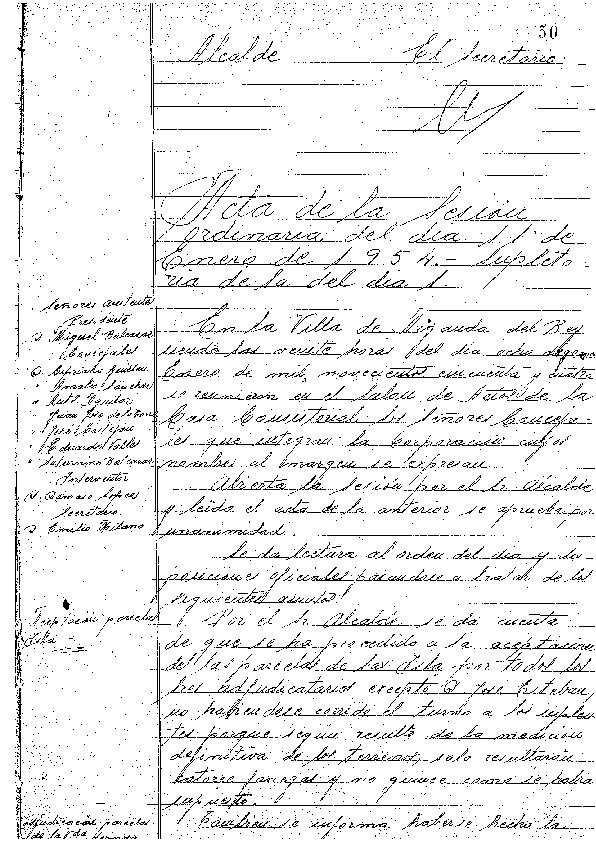 50
Alcalde El Secretario
Acta de la Sesion
ordinaria del dia 11 de
Enero de 1.954.- Supleto
ria de la del dia 1.
Señores asistentes
Presidente
D Miguel
Concejales
"
"
"
" Juan José
" José Esteban
" Eduardo Valles
" Saturnino
Interventor
D Damaso Lopez
Secretario
D Emilio Milano
En la Villa de del Rey
siendo las veinte horas del dia
Enero de mil novecientos cincuenta y cuatro
se reunieron en el Salon de Actos de la
Casa Consistorial los Señores Conceja-
les que integran la Corporacion cuyos
nombres al margen se expresan
Abierta la Sesion por el Sr Alcalde
y leido el acta de la anterior se aprueba por
unanimidad.
Se da lectura al orden del dia y dis-
posiciones oficiales pasandose a tratar de los
siguientes asuntos!
parcelas
Isla
Por el Sr Alcalde se da cuenta
de que se ha procedido a la aceptacion
de las parcelas de las Isla por todos los
tres adjudicatarios excepto D Jose Esteban,
no habiendose corrido el turno a los suplen-
tes porque segun resulto de la medicion
definitiva de los terrenos, solo resultaron
catorce y no quince como se habia
supuesto.
Adjudicacion parcelas
de la
Tambien se informa haberse hecho la